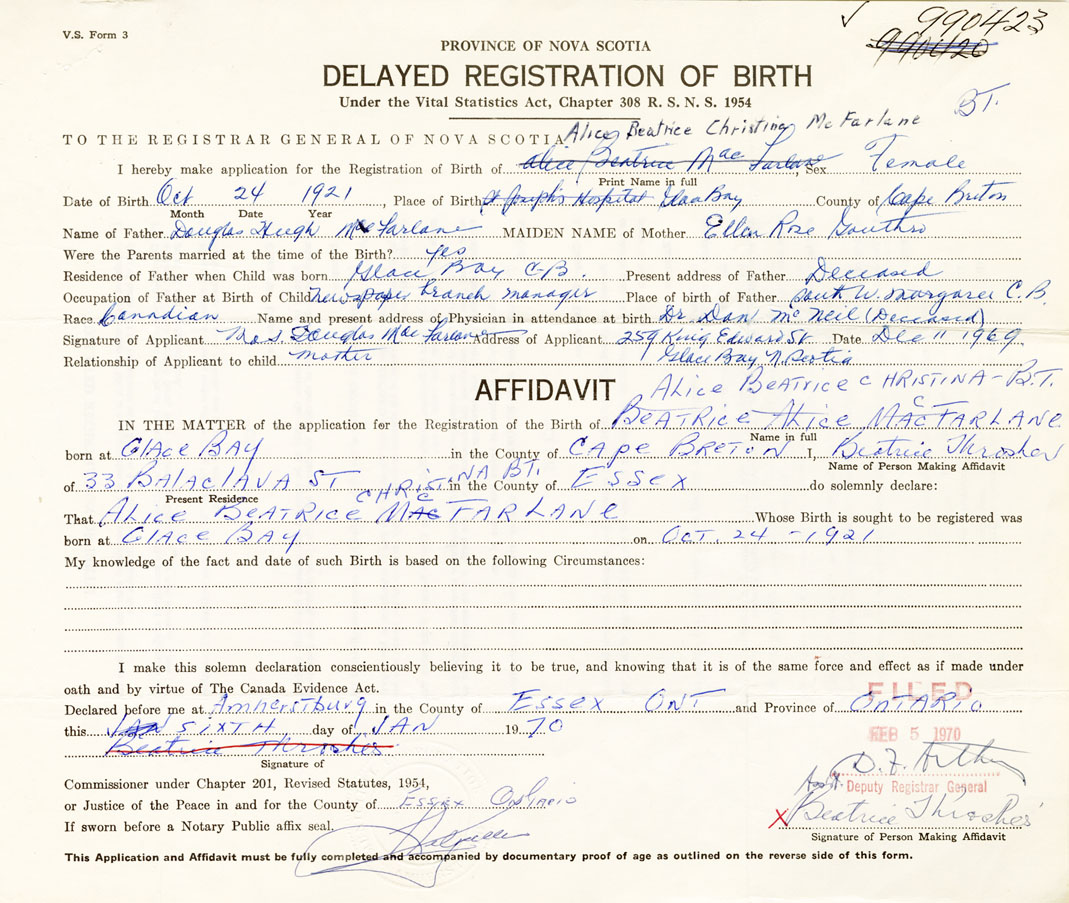 V.S. Form 3
✓ 990423
990420
PROVINCE OF NOVA SCOTIA
DELAYED REGISTRATION OF BIRTH
Under the Vital Statistics Act, Chapter 308 R. S. N. S. 1954
B.T.
Alice Beatrice Christina McFarlane
TO THE REGISTRAR GENERAL OF NOVA SCOTIA
I hereby make application for the Registration of Birth of Alice Beatrice MacFarlane, Sex Female
Print Name in full
Date of Birth Oct 24 1921, Place of Birth St Joseph's Hospital Glace Bay County of Cape Breton
Month Date Year
Name of Father Douglas Hugh McFarlane MAIDEN NAME of Mother Ellen Rose Gouthro
Were the Parents married at the time of the Birth? Yes
Residence of Father when Child was born Glace Bay C-B. Present address of Father Deceased
Occupation of Father at Birth of Child Newspaper branch manager Place of birth of Father South W. Margaree C.B.
Race Canadian Name and present address of Physician in attendance at birth Dr Dan McNeil (Deceased)
Signature of Applicant Mrs. Douglas MacFarlane Address of Applicant 259 King Edward St Date Dec 11 1969
Relationship of Applicant to child mother Glace Bay N. Scotia
AFFIDAVIT
ALICE BEATRICE CHRISTINA - B.T.
IN THE MATTER of the application for the Registration of the Birth of BEATRICE ALICE MACFARLANE
C
Name in full
born at GLACE BAY in the County of CAPE BRETON I, Beatrice Thrasher
Name of Person Making Affidavit
CHRISTINA BT.
of 33 BALACLAVA ST in the County of ESSEX do solemnly declare:
Present Residence
C
That ALICE BEATRICE MACFARLANE Whose Birth is sought to be registered was
born at GLACE BAY on OCT. 24 - 1921
My knowledge of the fact and date of such Birth is based on the following Circumstances:
I make this solemn declaration conscientiously believing it to be true, and knowing that it is of the same force and effect as if made under
oath and by virtue of The Canada Evidence Act.
FILED
Declared before me at Amherstburg in the County of ESSEX ONT and Province of ONTARIO
this JAN SIXTH day of JAN 1970
FEB 5 1970
Beatrice Thrasher
Signature of
Commissioner under Chapter 201, Revised Statutes, 1954,
Asst. Deputy Registrar General
or Justice of the Peace in and for the County of ESSEX ONTARIO
X Beatrice Thrasher
If sworn before a Notary Public affix seal.
Signature of Person Making Affidavit
This Application and Affidavit must be fully completed and accompanied by documentary proof of age as outlined on the reverse side of this form.